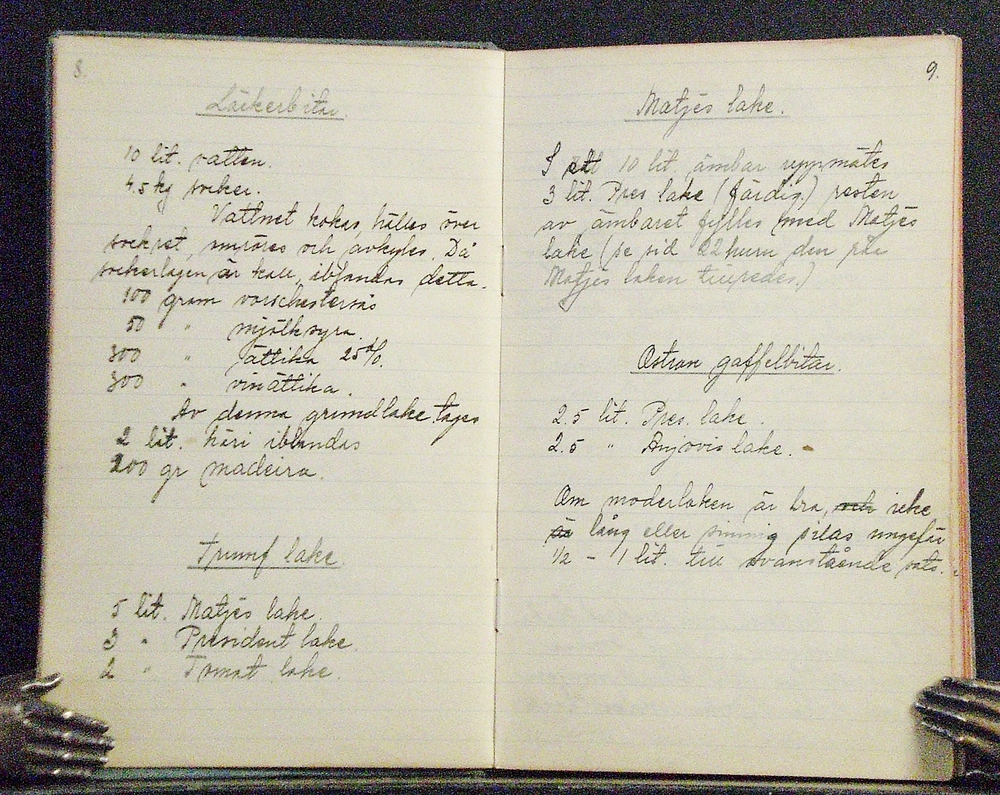 8.
Läckerbitar.
10 lit. vatten.
4.5 kg socker.
Vattnet kokas, hälles över
sockret, omröres och avkyles. Då
sockerlagen är kall, iblandas detta.
100 gram vorschestersås
50 " mjölksyra
300 " ättika 25%.
300 " vinättika.
Av denna grundlake tages
2 lit. häri iblandas
200 gr madeira.
Trumf lake.
5 lit. Matjes lake
3 " President lake.
2 " Tomat lake.
9.
Matjes lake.
I ett 10 lit. ämbar uppmätes
3 lit. Pres lake (färdig.) resten
av ämbaret fylles med Matjes
lake (se sid 22 huru den råa
Matjes laken tillredes.)
Ostron gaffelbitar.
2.5 lit. Pres. lake.
2.5 " Anjovis lake.
Om moderlaken är bra, och icke
är lång eller simmig silas ungefär
1/2 - 1 lit. till ovanstående sats.